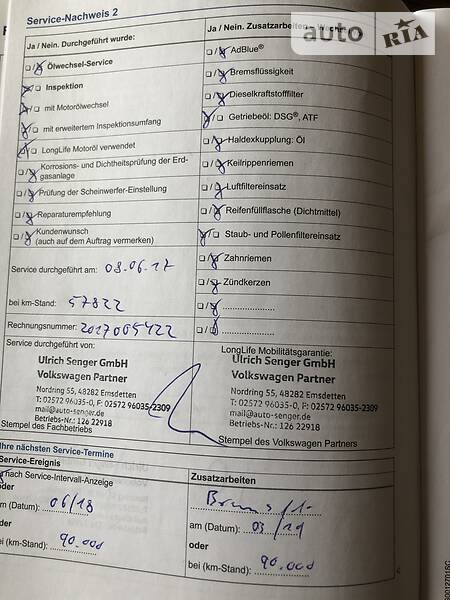 Service-Nachweis 2
auto RIA
Ja / Nein. Durchgeführt wurde:
Ölwechsel-Service
Inspektion
mit Motorölwechsel
mit erweitertem Inspektionsumfang
LongLife Motoröl verwendet
Korrosions- und Dichtheitsprüfung der Erd-
gasanlage
Prüfung der Scheinwerfer-Einstellung
Reparaturempfehlung
Kundenwunsch
(auch auf dem Auftrag vermerken)
Service durchgeführt am: 08.06.17
bei km-Stand: 57822
Rechnungsnummer: 2017005422
Service durchgeführt von:
Ulrich Senger GmbH
Volkswagen Partner
Nordring 55, 48282 Emsdetten
T: 02572 96035-0, F: 02572 96035-2309
mail@auto-senger.de
Betriebs-Nr.: 126 22918
Stempel des Fachbetriebs
Ja / Nein. Zusatzarbeiten
AdBlue®
Bremsflüssigkeit
Dieselkraftstofffilter
Getriebeöl: DSG®, ATF
Haldexkupplung: Öl
Keilrippenriemen
Luftfiltereinsatz
Reifenfüllflasche (Dichtmittel)
Staub- und Pollenfiltereinsatz
Zahnriemen
Zündkerzen
LongLife Mobilitätsgarantie:
Ulrich Senger GmbH
Volkswagen Partner
Nordring 55, 48282 Emsdetten
T: 02572 96035-0, F: 02572 96035-2309
mail@auto-senger.de
Betriebs-Nr.: 126 22918
Stempel des Volkswagen Partners
Ihre nächsten Service-Termine
Service-Ereignis
nach Service-Intervall-Anzeige
oder
am (Datum): 06/18
oder
bei (km-Stand): 90.000
Zusatzarbeiten
am (Datum): 03/19
oder
bei (km-Stand): 90.000